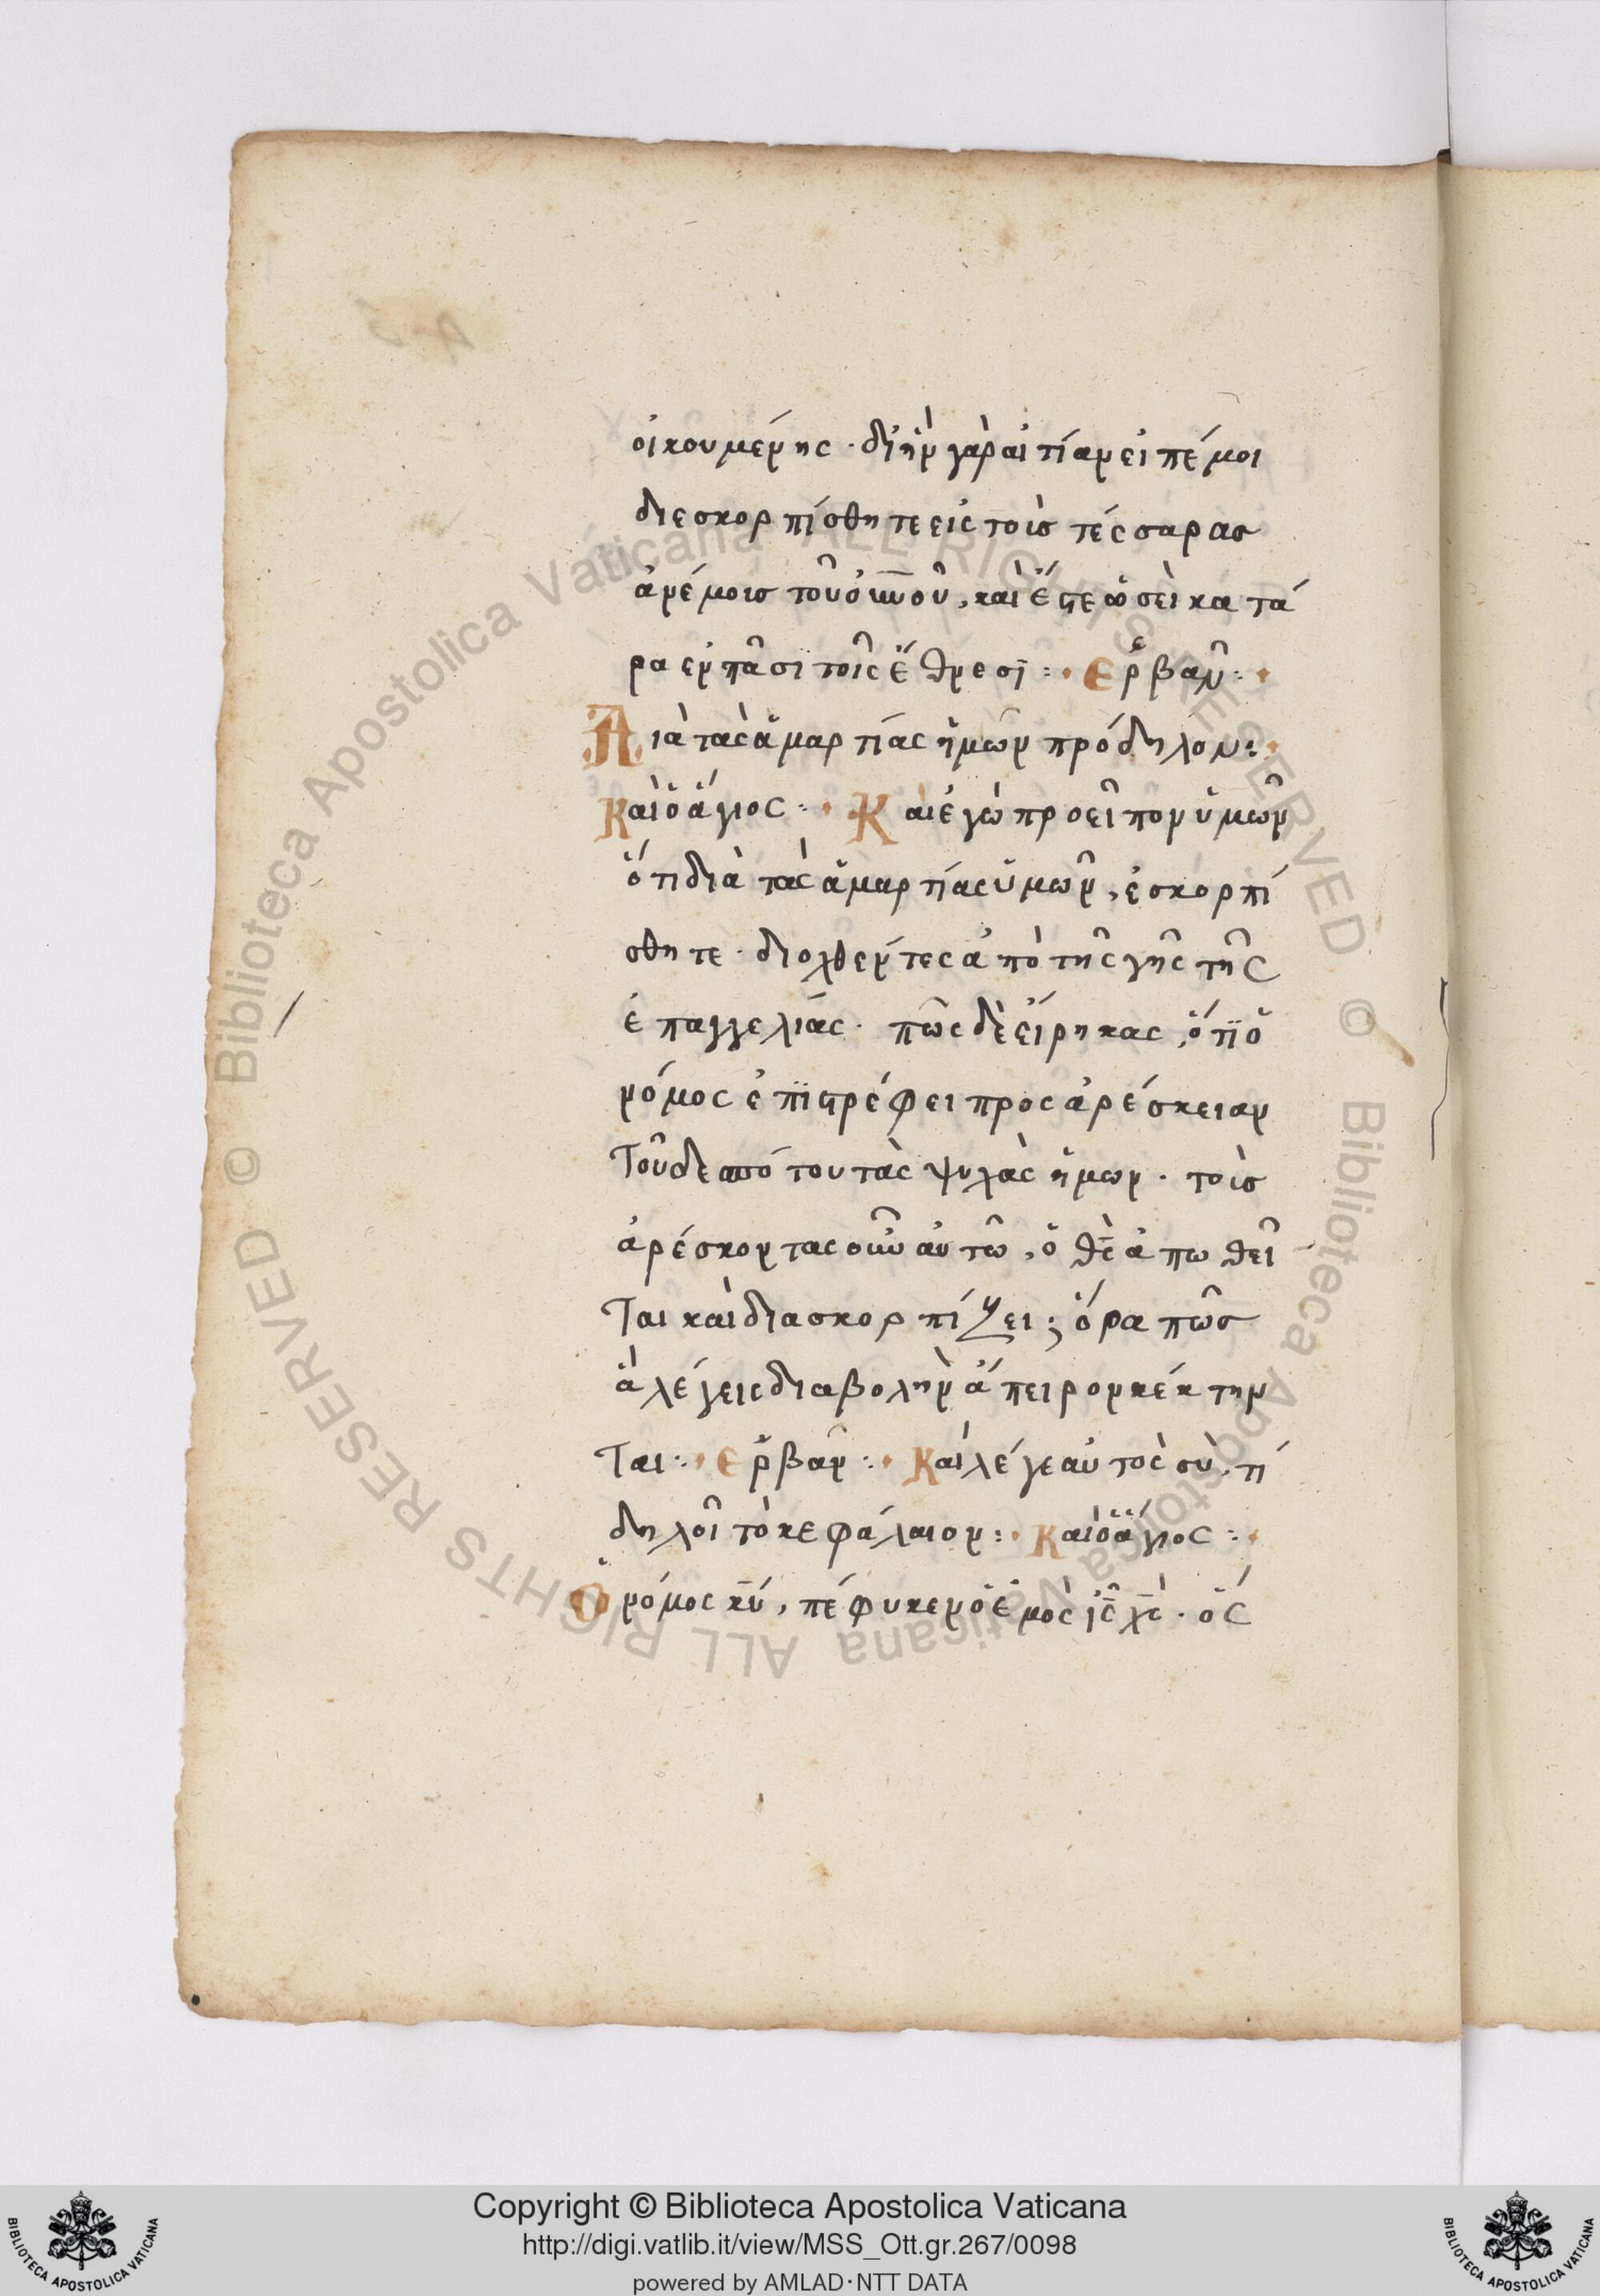 οἰκουμένης · δι ἣν γὰρ αἰτίαν εἰπέ μοι
διεσκορπίσθητε εἰς τοὺσ τέσσαρασ
ἀνέμουσ τοῦ οὐ̅νοῦ, καὶ ἔστε ὡσεὶ κατά
ρα ἐν πᾶσι τοῖς ἔθνεσι :· Ερβᾶν :·
Διὰ τὰς ἁμαρτίας ἡμῶν πρόδηλον :·
Καὶ ὁ ἅγιος :· Καὶ ἐγὼ προεῖπον ὑμῶν
ὅτι διὰ τὰς ἁμαρτίας ὑμῶν, ἐσκορπί
σθητε · διοχθέντες ἀπὸ τῆς γῆς τῆς
ἐπαγγελίας · πῶς δὲ εἴρηκας, ὅτι ὁ
νόμος ἐπιστρέφει προς ἀρέσκειαν
τοῦ δεσπότου τὰς ψυχὰς ἡμων · τοὺσ
ἀρέσκοντας οὖν αὐτῶ, ὁ θς̅ ἀπωθεῖ
ται καὶ διασκορπίζει; ὅρα πῶσ
ἃ λέγεις διαβολὴν ἄπειρον κέκτην
ται :· Ερβᾶν :· Καὶ λέγε αὐτὸς σὺ, τί
δηλοῖ τὸ κεφάλαιον :· Καὶ ὁ ἅγιος :·
Ὁ νόμος κυ̅, πέφυκεν ὁ ἐμὸς ις̅ χς̅ · ὃς
Copyright © Biblioteca Apostolica Vaticana
http://digi.vatlib.it/view/MSS_Ott.gr.267/0098
powered by AMLAD·NTT DATA
BIBLIOTECA APOSTOLICA VATICANA
BIBLIOTECA APOSTOLICA VATICANA
© Biblioteca Apostolica Vaticana ALL RIGHTS RESERVED
© Biblioteca Apostolica Vaticana ALL RIGHTS RESERVED